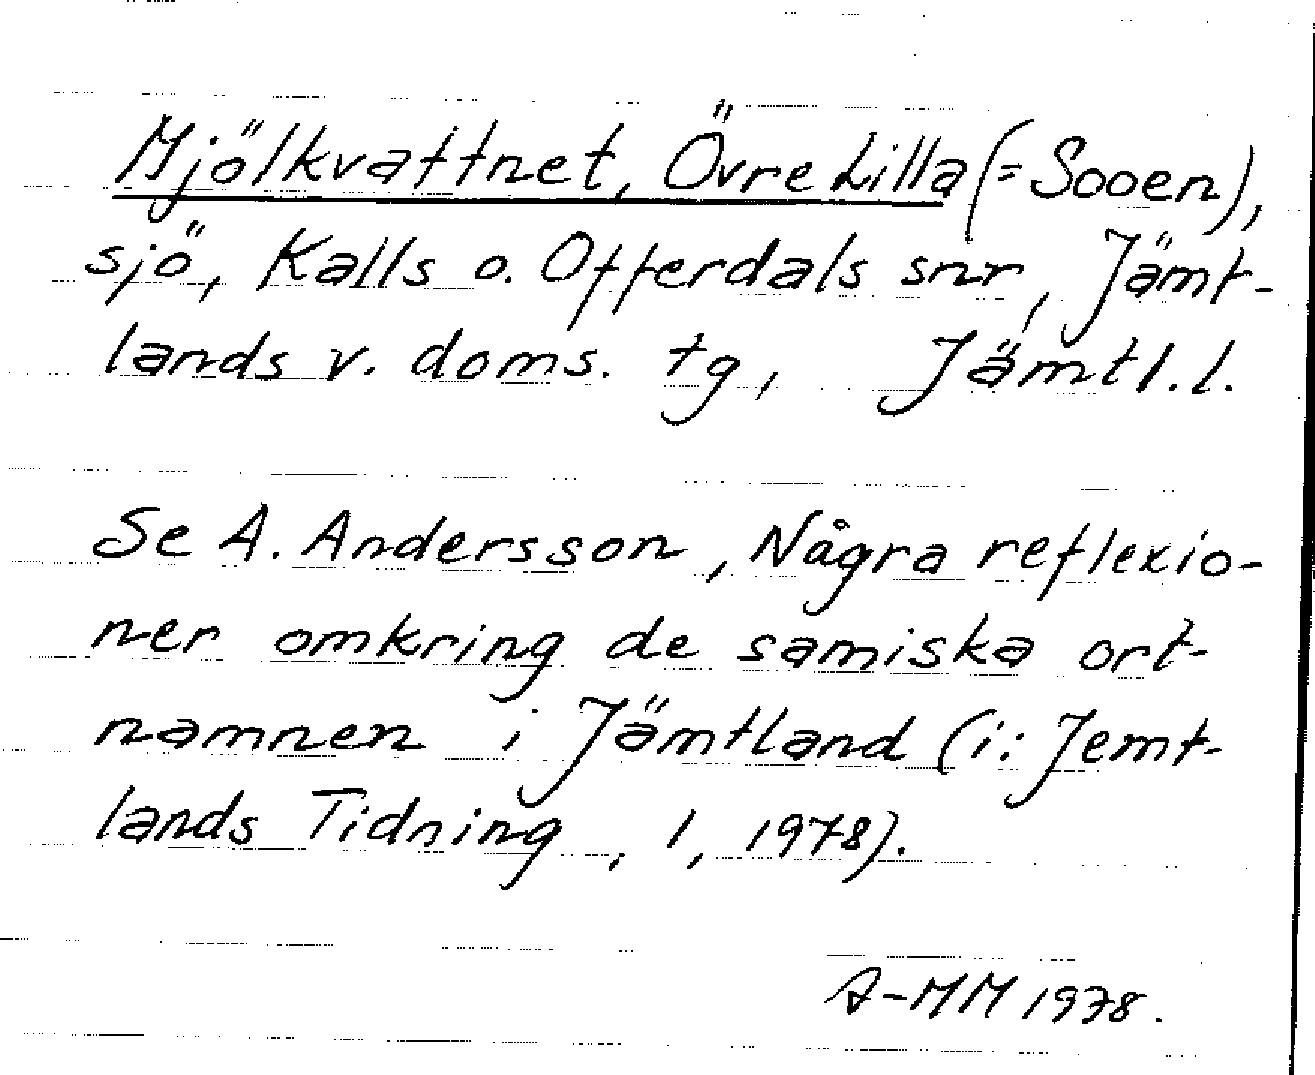 Mjölkvattnet, Övre Lilla (= Sooen),
sjö, Kalls o. Offerdals snr, Jämt-
lands v. doms. tg, Jämtl. l.
Se A. Andersson, Några reflexio-
ner omkring de samiska ort-
namnen i Jämtland (i: Jemt-
lands Tidning, 1, 1978).
A-MM 1978.